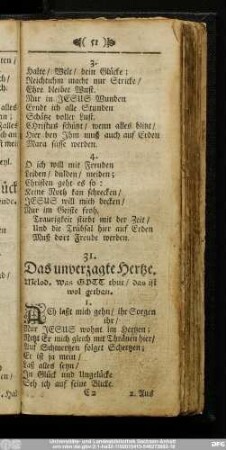 ( 51 )
3.
Halte/ Welt/ dein Glücke:
Reichthum macht nur Stricke/
Ehre bleibet Wust.
Nur in JESUS Wunden
Sind ich alle Stunden
Schätze voller Lust.
Christus schützt/ wenn alles blitzt/
Hier bey Ihm muß auch auf Erden
Mara süsse werden.
4.
O ich will mit Freuden
Leiden/ dulden/ meiden;
Christen geht es so:
Keine Noth kan schrecken/
JESUS will mich decken/
Nur im Geiste froh.
Traurigkeit stirbt mit der Zeit/
Und die Trübsal hier auf Erden
Muß dort Freude werden.
31.
Das unverzagte Hertze.
Melod. Was GOTT thut/ das ist
wol gethan.
1.
ACh laßt mich gehn/ ihr Sorgen
ihr/
Nur JESUS wohnt im Hertzen:
Netzt Er mich gleich mit Thränen hier/
Auf Schmertzen folget Schertzen;
Er ist ja mein/
Laß alles seyn/
In Glück und Ungelücke
Seh ich auf seine Blicke.
C 2
2. Aus